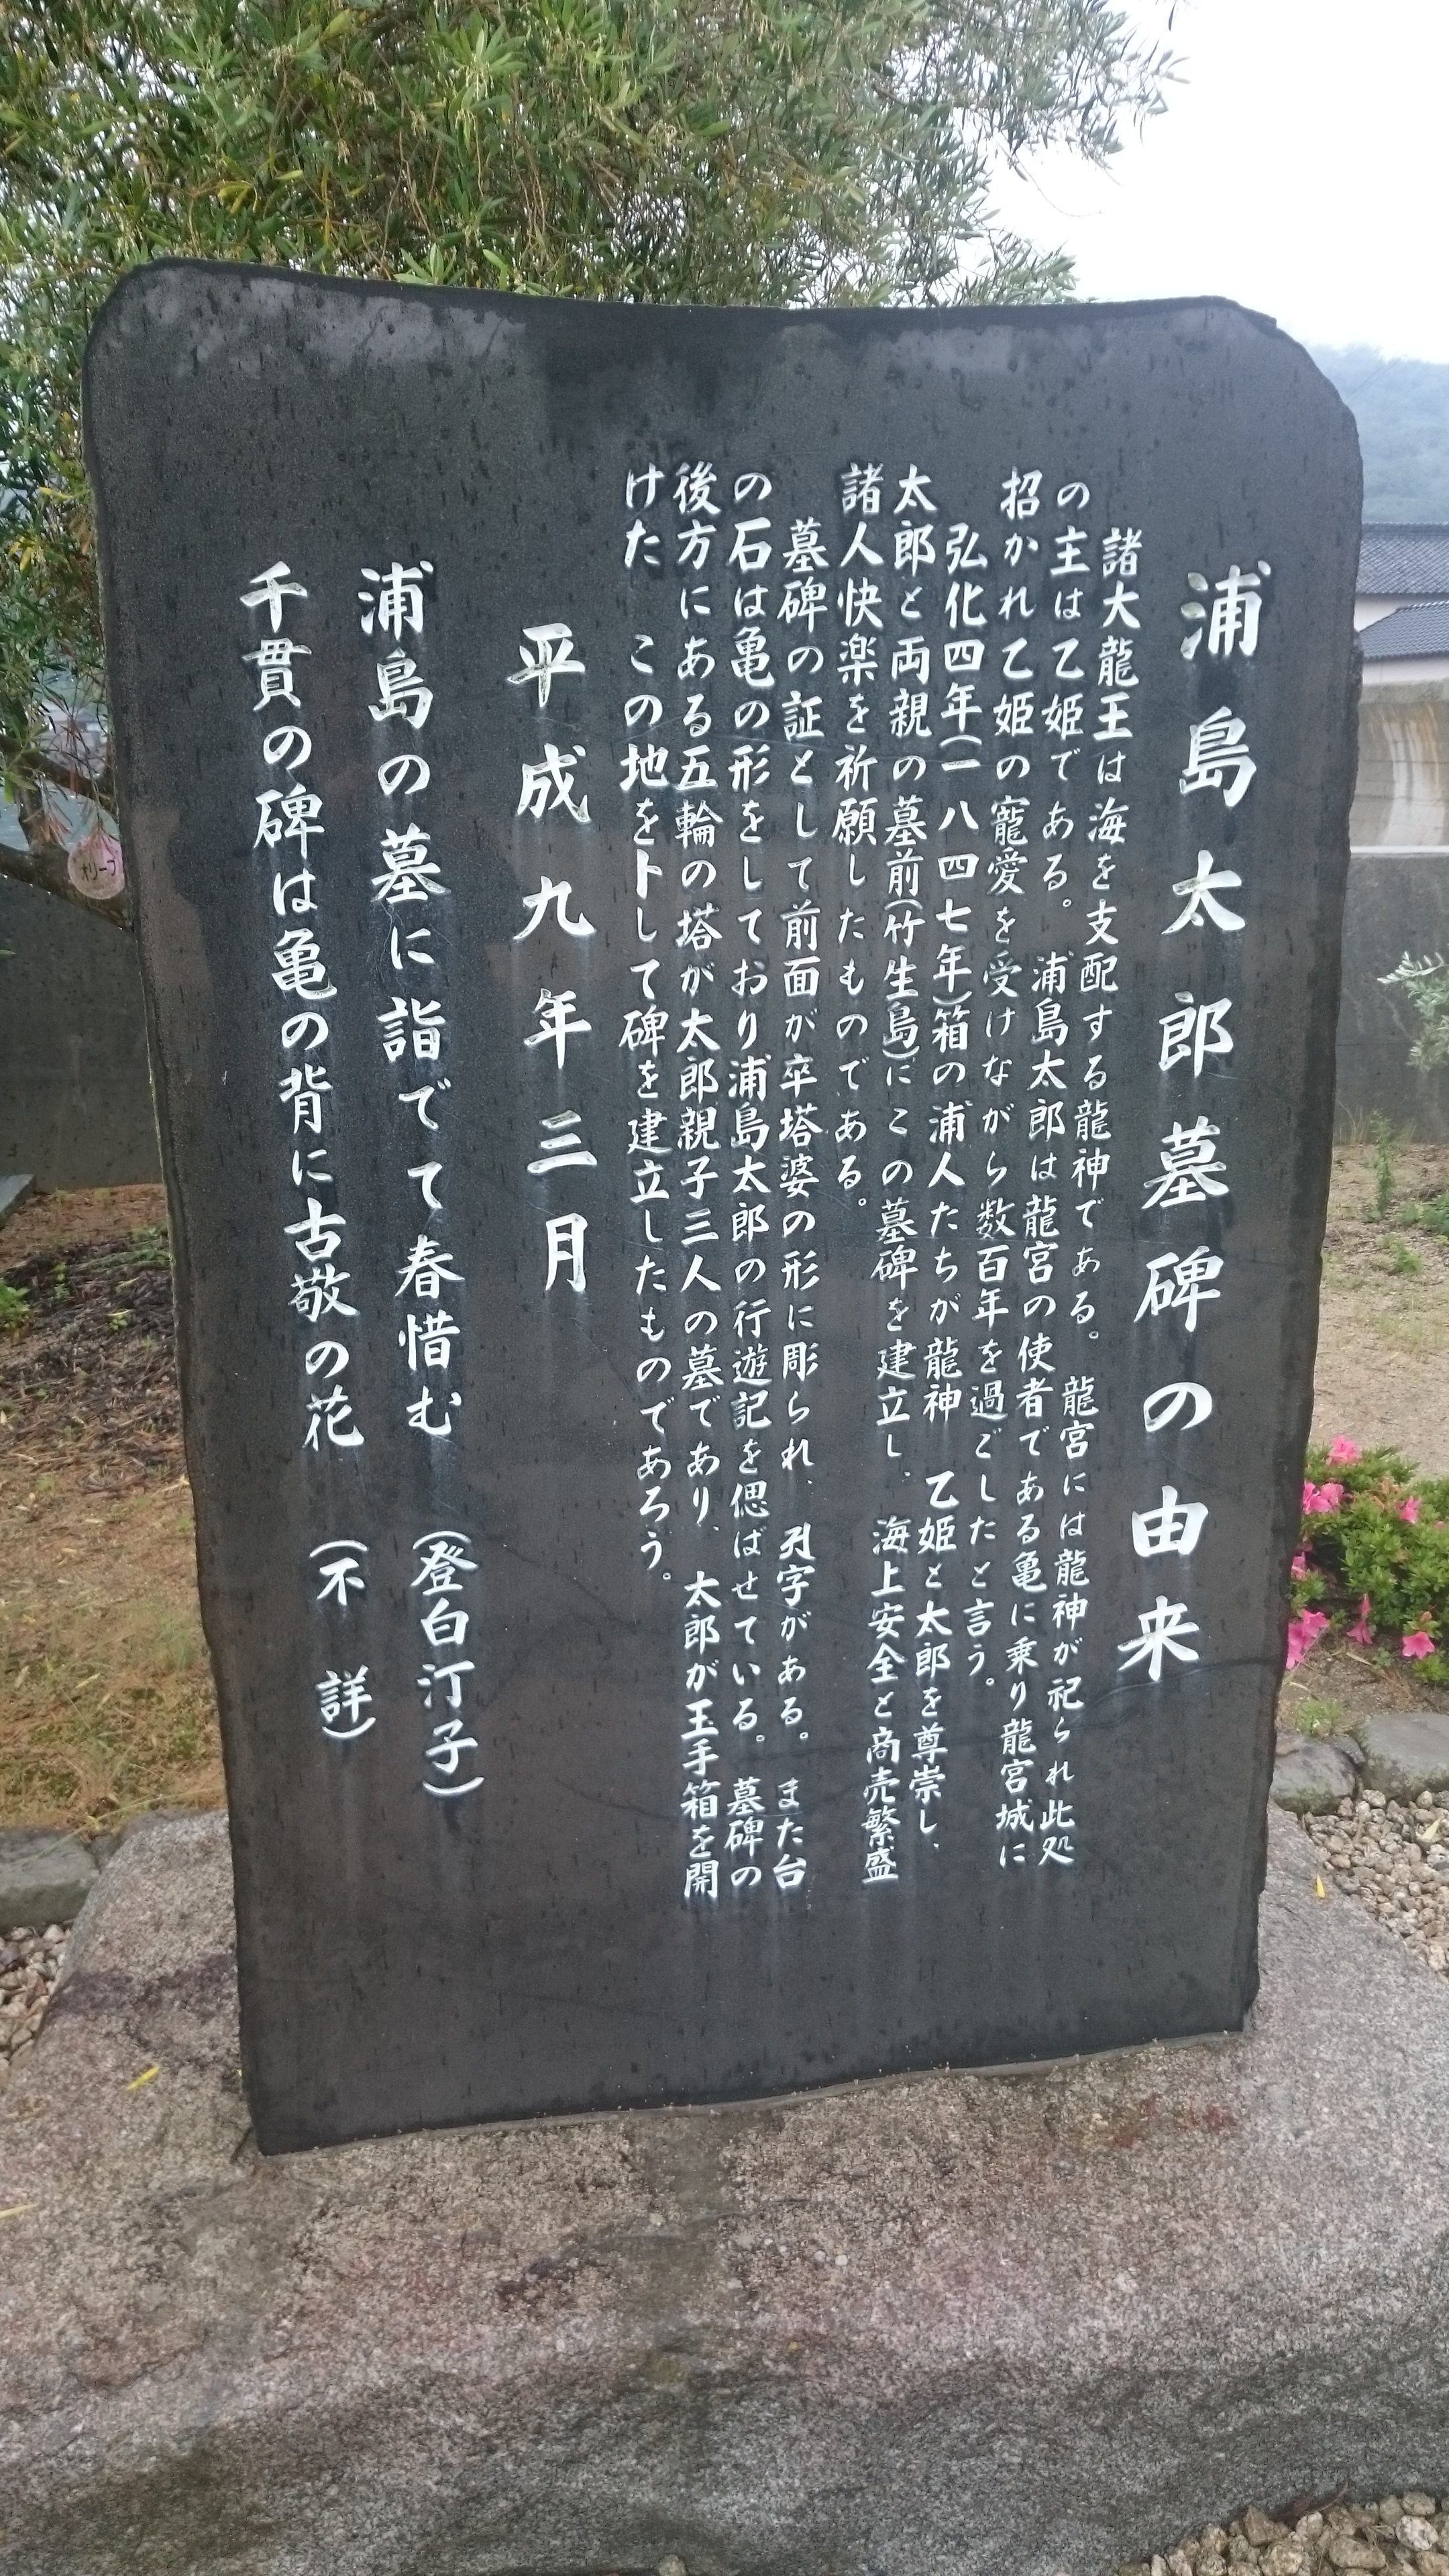 浦島太郎墓碑の由来
諸大龍王は海を支配する龍神である。龍宮には龍神が祀られ此処
の主は乙姫である。浦島太郎は龍宮の使者である亀に乗り龍宮城に
招かれ乙姫の寵愛を受けながら数百年を過ごしたと言う。
弘化四年(一八四七年)箱の浦人たちが龍神 乙姫と太郎を尊崇し、
太郎と両親の墓前(竹生島)にこの墓碑を建立し、海上安全と商売繁盛
諸人快楽を祈願したものである。
墓碑の証として前面が卒塔婆の形に彫られ、 字がある。また台
の石は亀の形をしており浦島太郎の行遊記を偲ばせている。墓碑の
後方にある五輪の塔が太郎親子三人の墓であり、太郎が玉手箱を開
けた この地を卜して碑を建立したものであろう。
平成九年三月
浦島の墓に詣でて春惜む (登白汀子)
千貫の碑は亀の背に古敬の花 (不 詳)
オリーブ